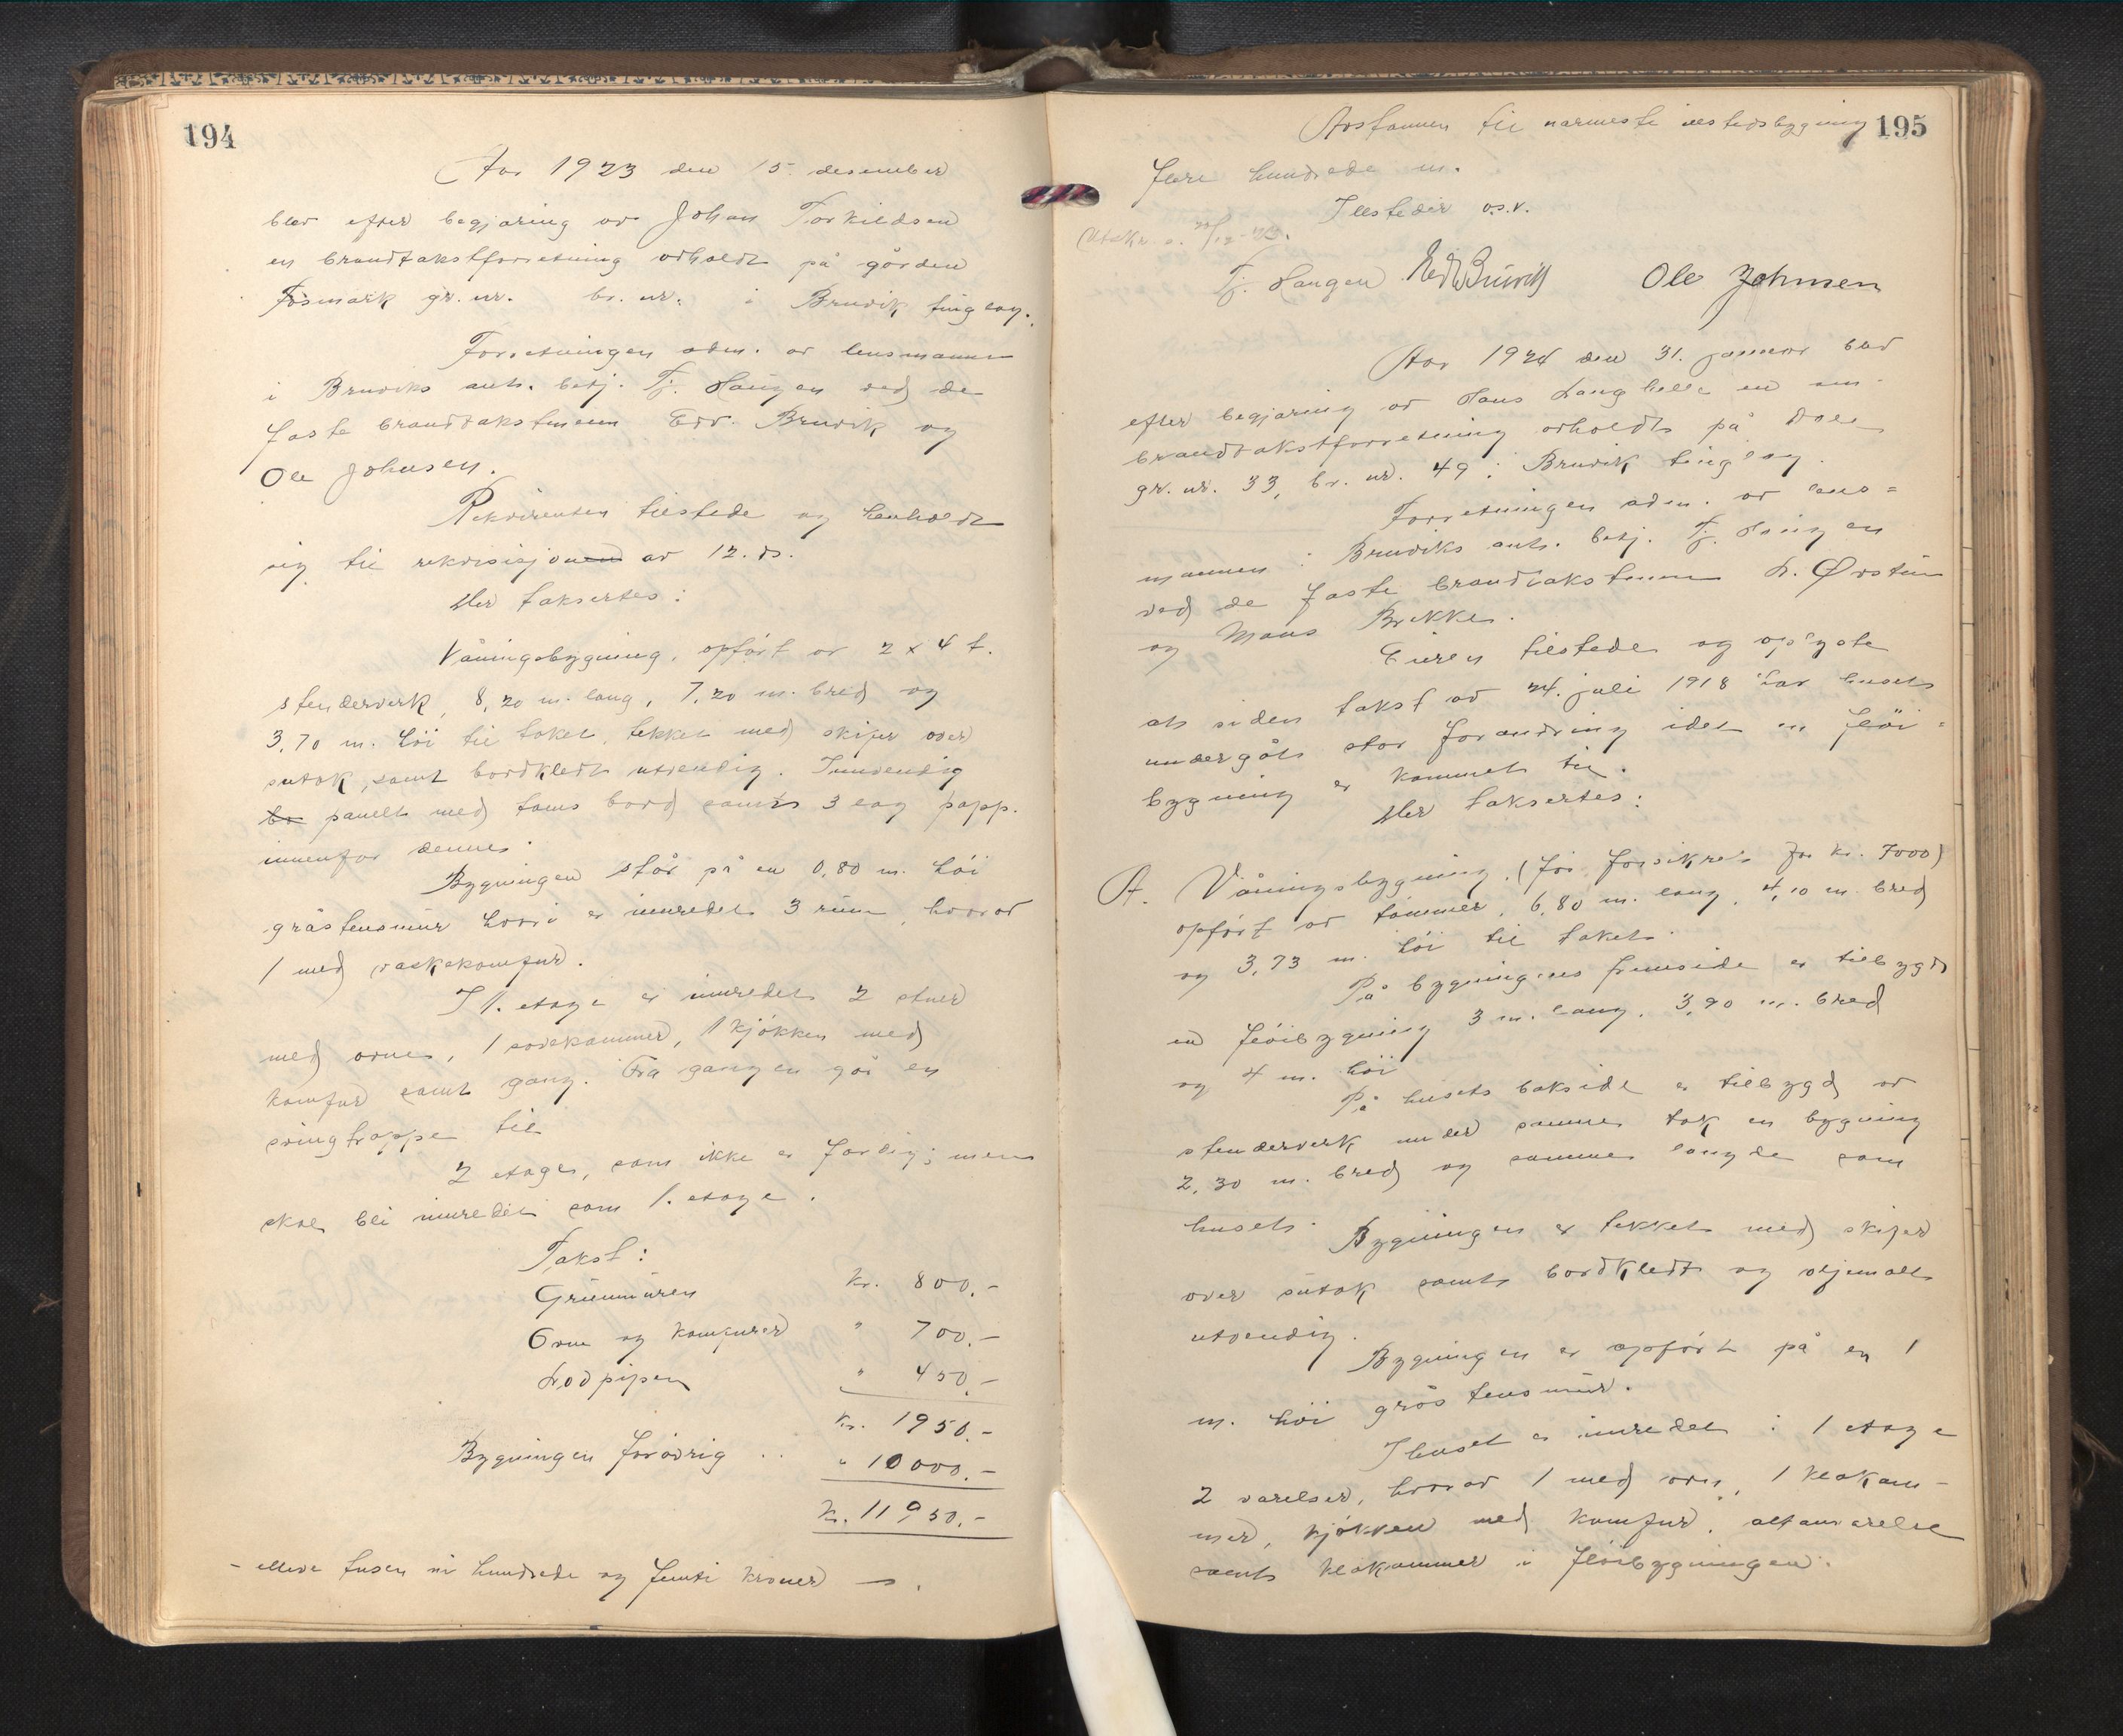 194
Aar 1923 den 15. desember
blev efter begjæring av Johan Torkildsen
en brandtakstforretning avholdt på gården
Fosmark gr. nr. br. nr. i Bruvik tinglag.
Forretningen adm. av lensmannen
i Bruviks aut. betj. Tj. Haugen ved de
faste brandtakstmenn Edv. Bruvik og
Ole Johnsen.
Rekvirenten tilstede og henholdt
sig til rekvisisjonen av 12. ds.
Her taksertes:
Våningsbygning, opført av 2 x 4 t.
stenderverk, 8,20 m. lang, 7,20 m. bred og
3,70 m. høi til taket, tekket med skifer over
sutak, samt bordkledt utvendig. Innvendig
bo panelt med toms bord samt 3 lag papp.
innenfor denne.
Bygningen står på en 0,80 m. høi
gråstensmur hvori er innredet 3 rum, hvorav
1 med vaskekomfur.
I 1. etage er innredet 2 stuer
med ovne, 1 sovekammer, 1 kjøkken med
komfur samt gang. Fra gangen går en
svingtrappe til
2 etage, som ikke er færdig; men
skal bli innredet som 1. etage.
Takst:
Grunnmuren kr. 800.-
Ovne og komfurer " 700.-
Luvpipen " 450.-
kr. 1950.-
Bygningen forøvrig .. " 10000.-
kr. 11950.-
- elleve tusen ni hundrede og femti kroner -.
195
Avstannen til nærmeste ilstedsbygning
flere hundrede m.
Ilsteder o.s.v.
Utskr. s. 20/12-23.
Tj. Haugen Edv Bruvik Ole Johnsen
Aar 1924 den 31. januar blev
efter begjæring av Hans Langhelle en om-
brandtakstforretning avholdt på Dale
gr. nr. 33, br. nr. 49 i Bruvik tinglag.
Forretningen adm. av lens=
mannen i Bruviks aut. betj. Tj. Haugen
ved de faste brandtakstmenn L. Ørstun
og Mons Brekke.
Eieren tilstede og oplyste
at siden takst av 24. juli 1918 har huset
undergåt stor forandring idet en fløi=
bygning er kommet til.
Her taksertes:
A. Våningsbygning, (før forsikret for kr. 7000)
opført av tømmer, 6,80 m. lang, 4,10 m. bred
og 3,73 m. høi til taket.
På bygningens fremside er tilbygd
en fløibygning 3 m. lang, 3,90 m. bred
og 4 m. høi
På husets bakside er tilbygd av
stenderverk under samme tak en bygning
2,30 m. bred og samme længde som
huset.
Bygningen er tekket med skifer
over sutak samt bordkledt og oljemalt
utvendig.
Bygningen er opført på en 1
m. høi gråstensmur.
I huset er innredet i 1 etage
2 værelser, hvorav 1 med ovn, 1 klækam-
mer, kjøkken med komfur, altanværelse
samt klækammer i fløibygningen.